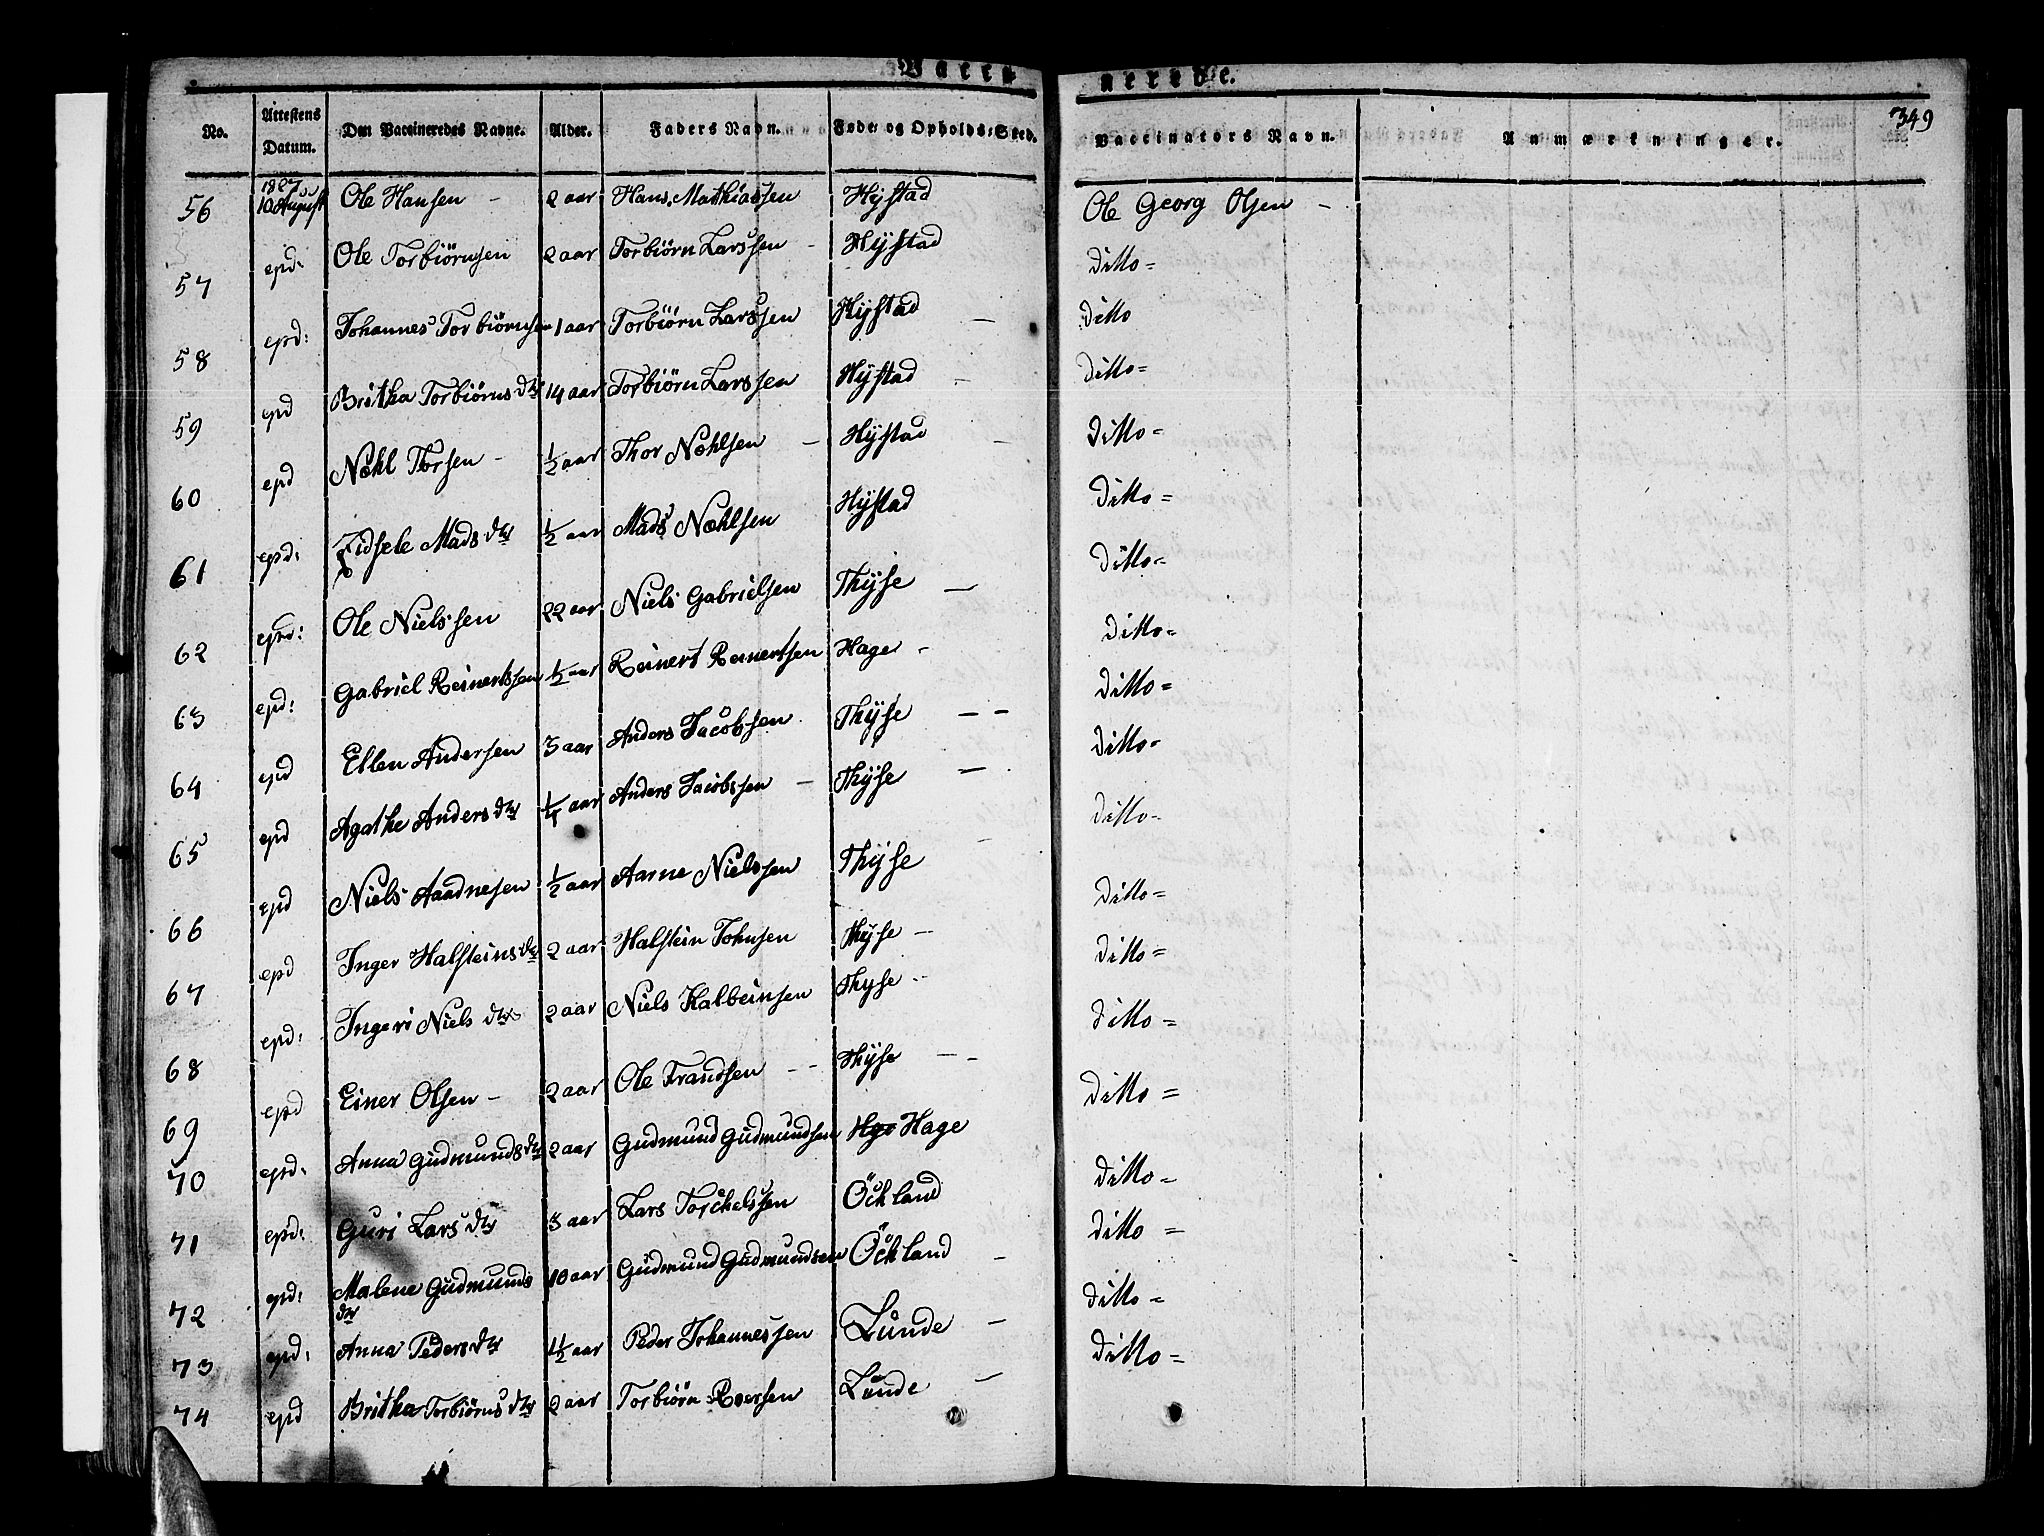 Vacci
nerede.
349
No. Attestens Datum. Den Vaccineredes Navne. Alder. Faders Navn. Føde- og Opholds-Sted. Vaccinators Navn. Anmærkninger.
56 1827 10 August Ole Hansen - 2 aar Hans Mathiassen Hÿstad Ole Georg Olsen -
57 epd: Ole Torbiörnsen 2 aar Torbiörn Larssen - Hÿstad ditto =
58 epd: Johannes Torbiörnsen 1 aar Torbiörn Larssen Hÿstad - ditto
59 epd Britha Torbiörns dtr 14 aar Torbiörn Larssen Hÿstad - ditto =
60 epd Nœhl Thorsen - 1/2 aar Thor Nœhlsen - Hÿstad - ditto =
61 epd: Zidsele Mads dtr 1/2 aar Mads Nœhlsen Hÿstad ditto =
62 epd: Ole Nielssen 22 aar Niels Gabrielsen Thÿse - ditto =
63 epd: Gabriel Reinertssen 1/2 aar Reinert Reinertsen Hage - ditto =
64 epd Ellen Andersen 3 aar Anders Jacobsen Thÿse - - ditto =
65 epd Agathe Anders dtr 1/4 aar Anders Jacobssen - Thÿse - ditto =
66 epd Niels Aadnesen 1/2 aar Aarne Nielssen Thÿse ditto =
67 epd Inger Halsteins dtr 2 aar Halstein Johnsen Thÿse - ditto =
68 epd: Ingeri Niels dtr 2 aar Niels Kalbeinsen Thyse - ditto =
69 epd Einer Olsen - 2 aar Ole Trandsen - - Thÿse - - ditto =
70 epd: Anna Gudmunds dtr 2 aar Gudmund Gudmundsen Hage ditto =
71 epd: Guri Lars dtr 3 aar Lars Torchelssen Öckland ditto =
72 epd: Malene Gudmunds dtr 10 aar Gudmund Gudmundsen Öckland - ditto =
73 epd: Anna Peders dtr 1 1/2 aar Peder Johannessen Lunde - ditto =
74 epd Britha Torbiörns dtr 2 aar Torbiörn Roersen Lunde -
ditto =